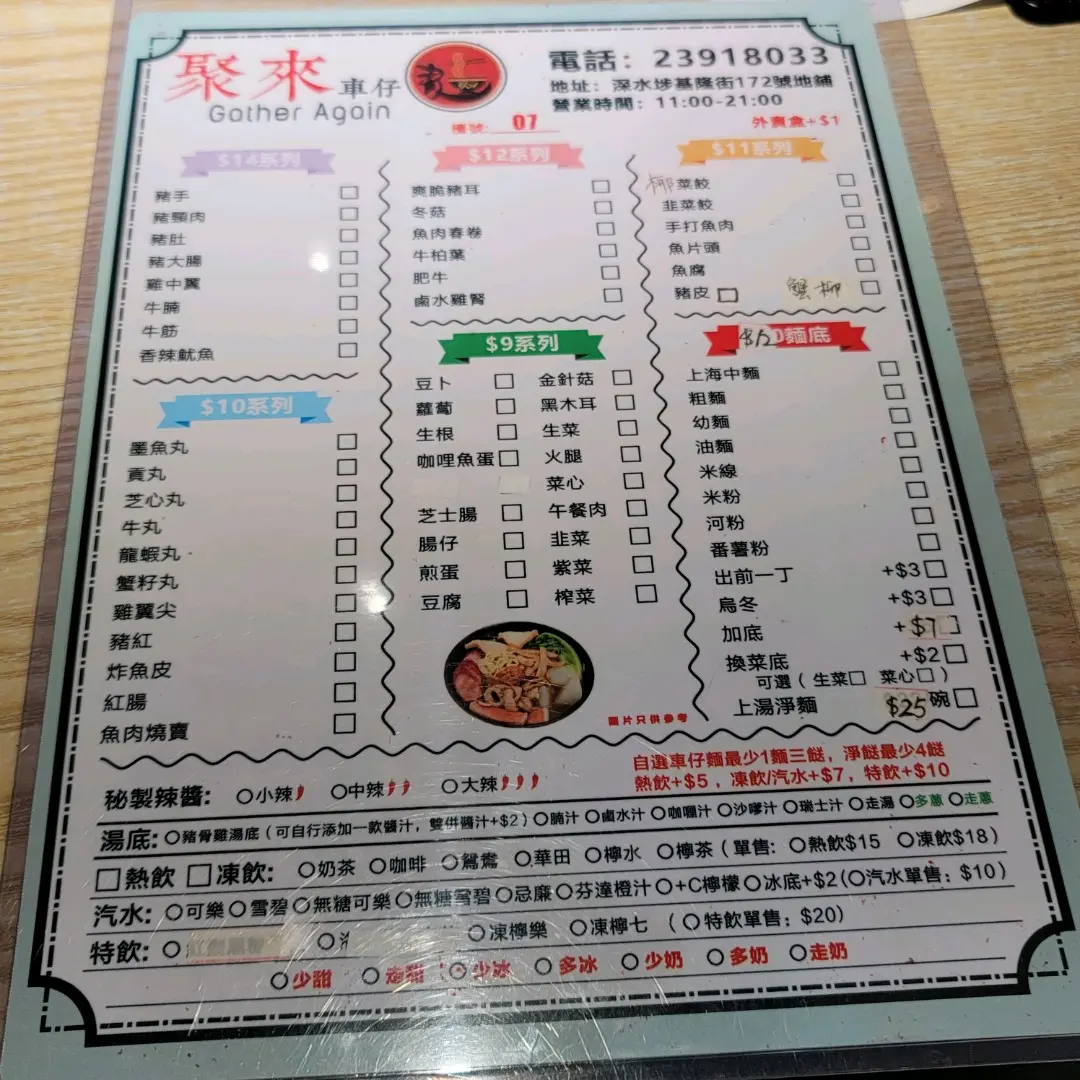 聚來車仔
Gather Again
電話：23918033
地址：深水埗基隆街172號地鋪
營業時間：11:00-21:00
檯號: 07
外賣盒+$1
$14系列
豬手
豬頸肉
豬肚
豬大腸
雞中翼
牛腩
牛筋
香辣魷魚
$10系列
墨魚丸
貢丸
芝心丸
牛丸
龍蝦丸
蟹籽丸
雞翼尖
豬紅
炸魚皮
紅腸
魚肉燒賣
$12系列
爽脆豬耳
冬菇
魚肉春卷
牛柏葉
肥牛
鹵水雞腎
$9系列
豆卜 金針菇
蘿蔔 黑木耳
生根 生菜
咖哩魚蛋 火腿
菜心
芝士腸 午餐肉
腸仔 韭菜
煎蛋 紫菜
豆腐 榨菜
圖片只供參考
$11系列
椰菜餃
韭菜餃
手打魚肉
魚片頭
魚腐
豬皮 蟹柳
麵底
上海中麵
粗麵
幼麵
油麵
米線
米粉
河粉
番薯粉
出前一丁 +$3
烏冬 +$3
加底 +$7
換菜底 +$2
可選（生菜 菜心）
上湯淨麵 $25碗
自選車仔麵最少1麵三餸，淨餸最少4餸
熱飲+$5，凍飲/汽水+$7，特飲+$10
秘製辣醬: 小辣 中辣 大辣
湯底: 豬骨雞湯底（可自行添加一款醬汁，雙併醬汁+$2）腩汁 鹵水汁 咖喱汁 沙嗲汁 瑞士汁 走湯 多蔥 走蔥
熱飲 凍飲: 奶茶 咖啡 鴛鴦 華田 檸水 檸茶（單售: 熱飲$15 凍飲$18）
汽水: 可樂 雪碧 無糖可樂 無糖雪碧 忌廉 芬達橙汁 +C檸檬 冰底+$2(汽水單售: $10)
特飲: 凍檸樂 凍檸七 （特飲單售: $20）
少甜 走甜 少冰 多冰 少奶 多奶 走奶